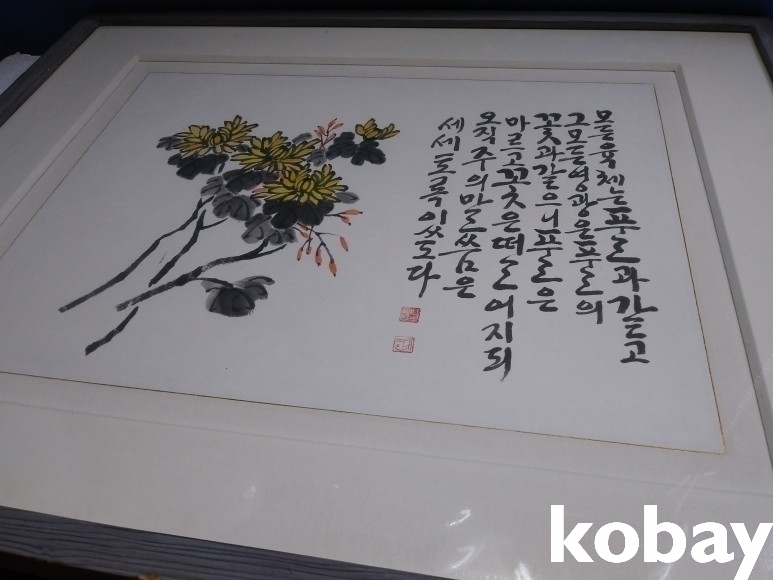 모든 육체는 풀과 같고
그 모든 영광은 풀의
꽃과 같으니 풀은
마르고 꽃은 떨어지되
오직 주의 말씀은
세세토록 있도다
kobay